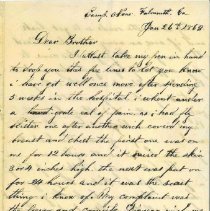 Camp Near Falmouth Va
Jan 26th 1863
Dear Brother
I attempt take my pen in hand
to drop you this few lines to let you know
i have got well once more after spending
3 weaks in the hospital i whent under
a great eate of pain. as i had fly
blister one after another such coverd my
breast and chest the first one was on
me for 12 hours and it raised the skin
3 or 4 inches high the next was put on
for 24 hours and it was the soarst
thing i know of. My complaint was